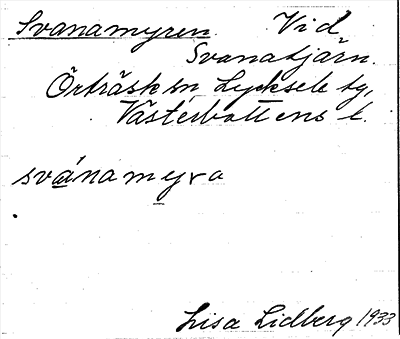 Svanamyren. Vid
Svanatjärn.
Örträsk sn Lycksele tg,
Västerbottens l.
svánamyra
Lisa Lidberg 1933